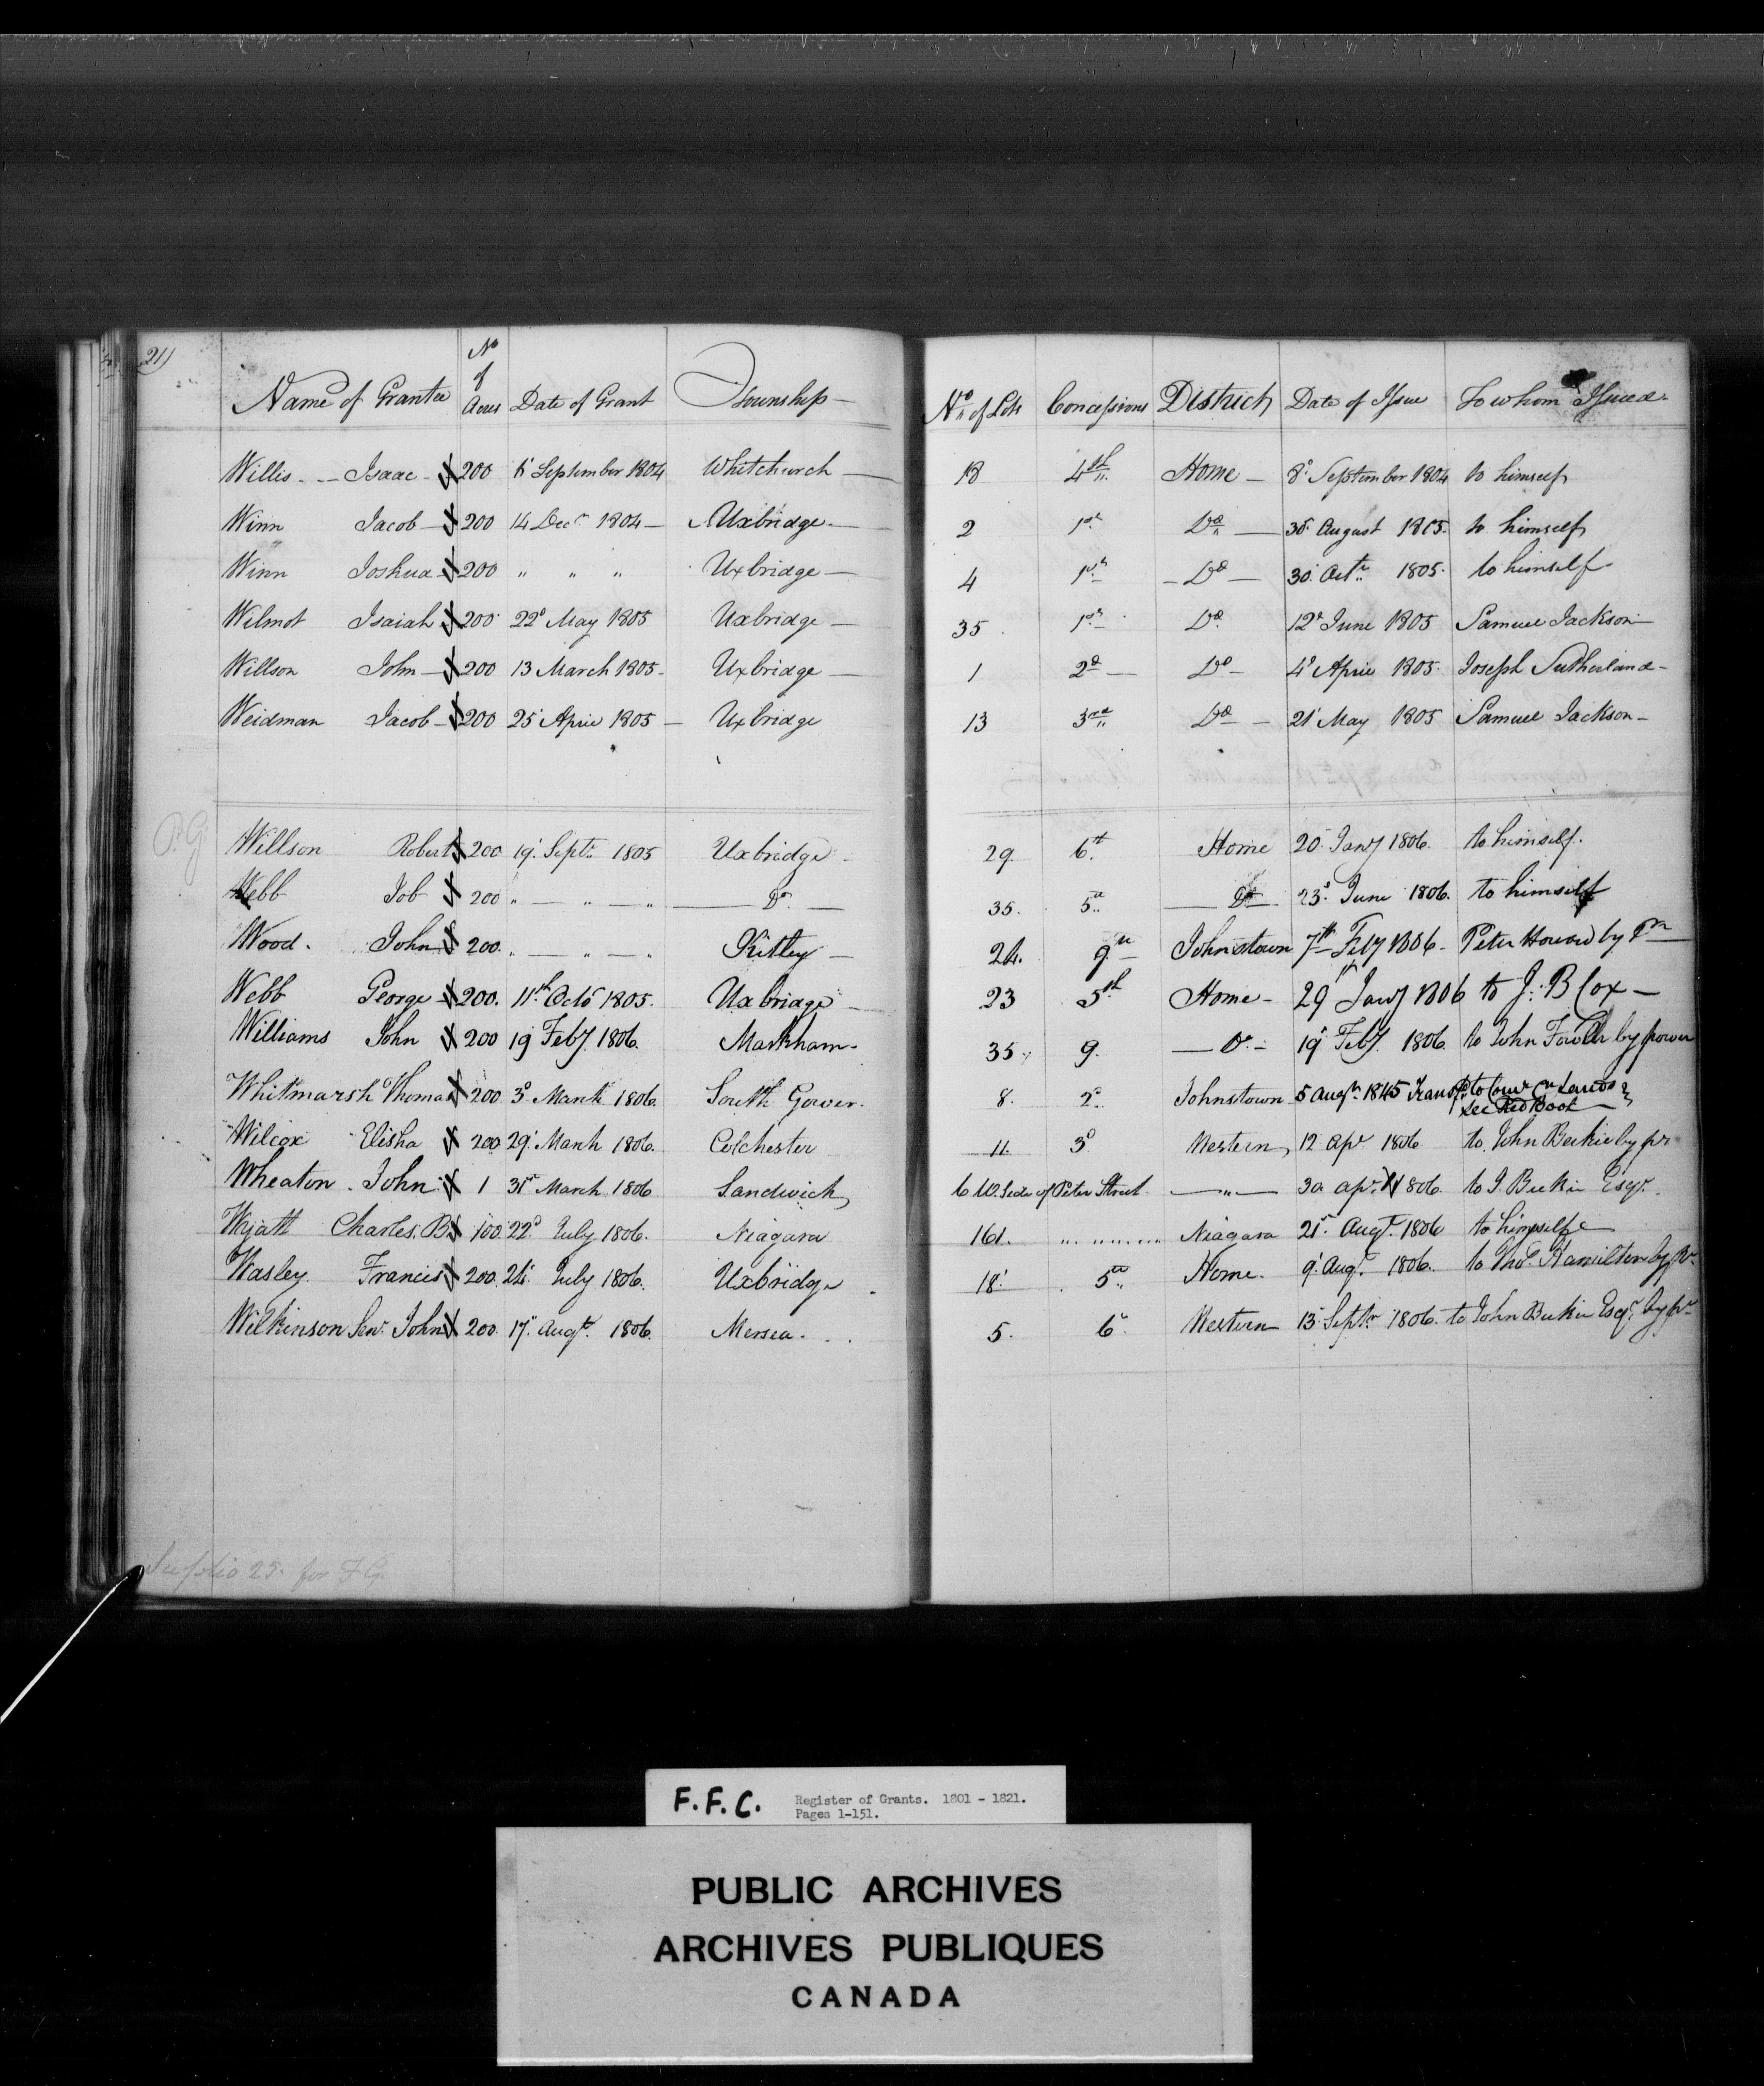 21)
Name of Grantee No of Acres Date of Grant Township No of Lots Concessions District Date of Issue To whom Issued
Willis Isaac 200 6 September 1804 Whitchurch 18 4th Home 8 September 1804 to himself
Winn Jacob 200 14 Decr 1804 Uxbridge 2 1st Do 30 August 1805 to himself
Winn Joshua 200 " " " Uxbridge 4 1st Do 30 Octr 1805 to himself
Wilmot Isaiah 200 22d May 1805 Uxbridge 35 1st Do 12 June 1805 Samuel Jackson
Willson John 200 13 March 1805 Uxbridge 1 2d Do 4 April 1805 Joseph Sutherland
Weidman Jacob 200 25 April 1805 Uxbridge 13 3rd Do 21 May 1805 Samuel Jackson
P.G Willson Robert 200 19 Septr 1805 Uxbridge 29 6th Home 20 Jany 1806 to himself
Webb Job 200 " " " Do 35 5th Do 23d June 1806 to himself
Wood John 200 " " " Kitley 24 9th Johnstown 7th Feby 1806 Peter Howard by
Webb George 200 11th Octo 1805 Uxbridge 23 5th Home 29th Jany 1806 to J: B Cox
Williams John 200 19 Feby 1806 Markham 35 9 Do 19 Feby 1806 to John Fowler by power
Whitmarsh Thomas 200 3d March 1806 South Gower 8 2d Johnstown 5 Augt 1845 to Comr Cn Lands
See Red Book
Wilcox Elisha 200 29 March 1806 Colchester 11 3d Western 12 apr 1806 to John Beikie by pr
Wheaton John 1 31st March 1806 Sandwich 6 W. Side of Peter Street " 30 apr 1806 to J. Beikie Esqr.
Wyatt Charles. B. 100 22d July 1806 Niagara 161 Niagara 21st Augt 1806 to himself
Wasley Francis 200 24 July 1806 Uxbridge 18 5th Home 9 Augt 1806 to Thos. Hamilton by Pr
Wilkinson Senr John 200 17 Augt 1806 Mersea 5 6 Western 13 Septr 1806 to John Beikie Esqr by pr
See folio 25. for F G.
F.F.C. Register of Grants. 1801 - 1821.
Pages 1-151.
PUBLIC ARCHIVES
ARCHIVES PUBLIQUES
CANADA